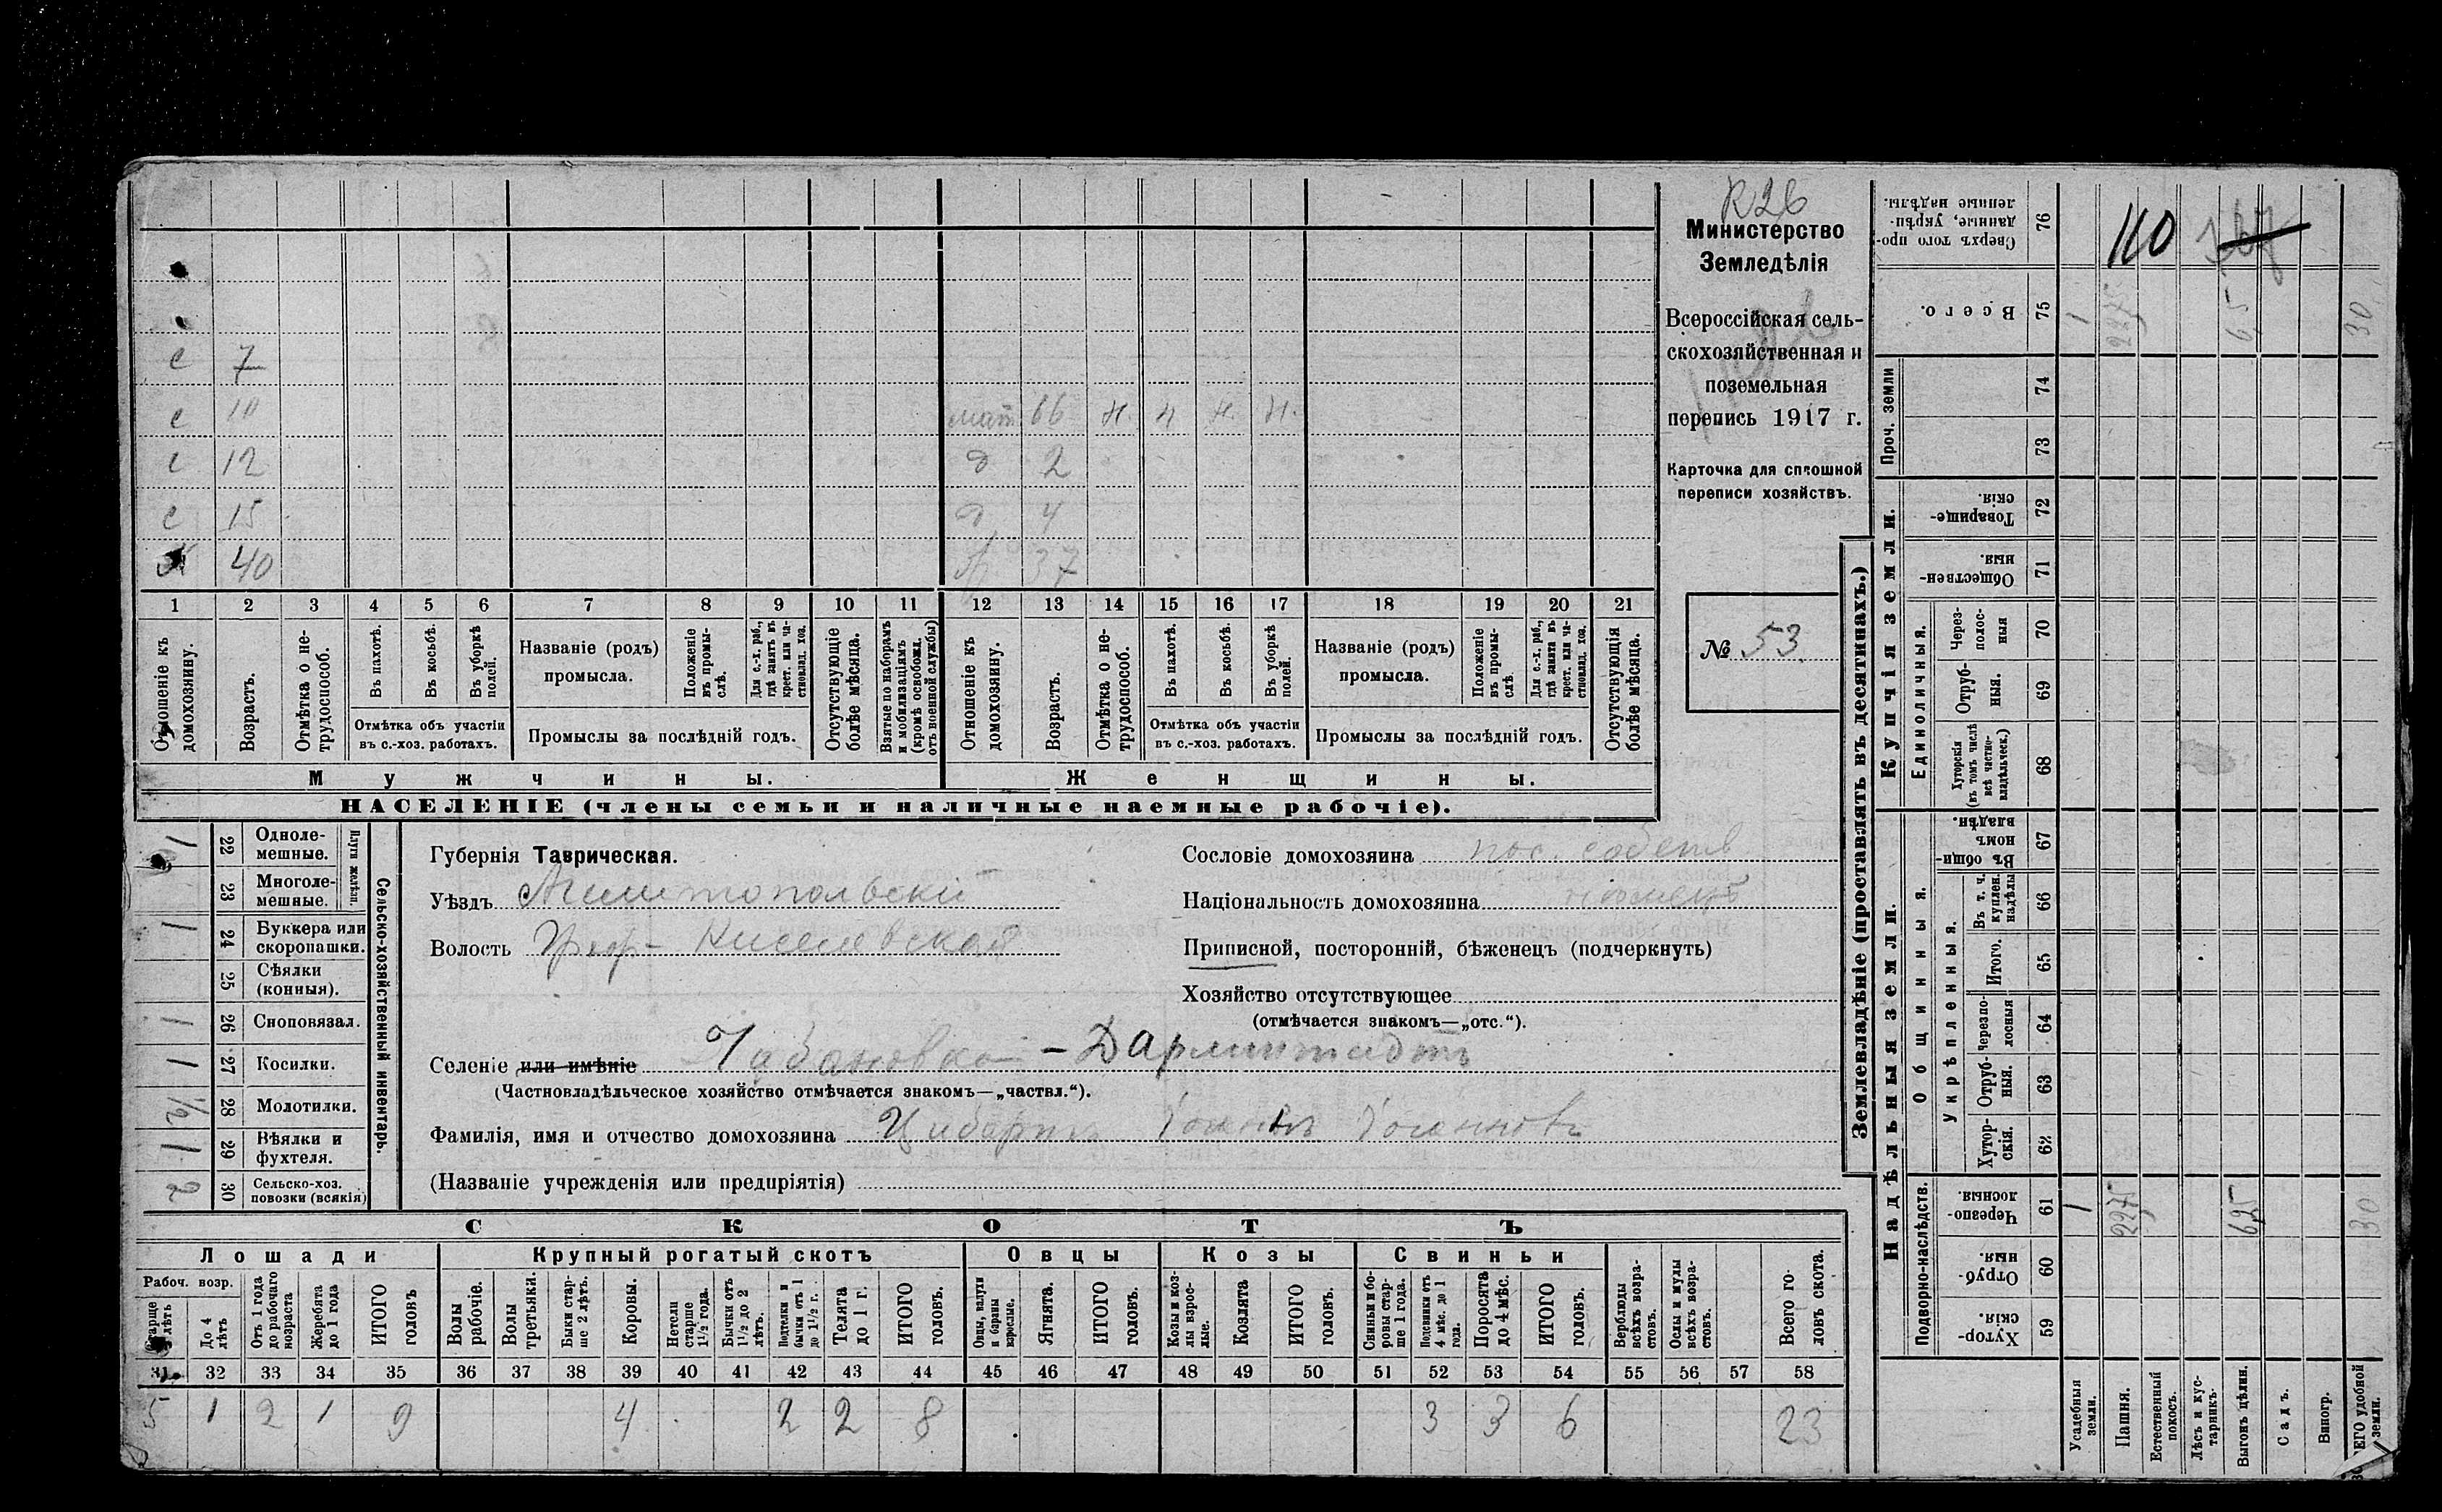 R26
Министерство
Земледѣлія
Всероссійская сель-
скохозяйственная и
поземельная
перепись 1917 г.
Карточка для сплошной
переписи хозяйствъ.
№ 53
с 7
с 10 мат 66 н. н н. н.
с 12 д 2
с 15 д 4
х 40 ж 37
1 2 3 4 5 6 7 8 9 10 11 12 13 14 15 16 17 18 19 20 21
Отношеніе къ домохозяину.
Возрастъ.
Отмѣтка о не-трудоспособ.
Въ пахотѣ.
Въ косьбѣ.
Въ уборкѣ полей.
Отмѣтка объ участіи
въ с.-хоз. работахъ.
Названіе (родъ)
промысла.
Положеніе въ промы-слѣ.
Для с.-х. раб., гдѣ занятъ въ крест. или ча-стновлад. хоз.
Промыслы за послѣдній годъ.
Отсутствующіе болѣе мѣсяца.
Взятые по наборамъ и мобилизаціямъ (кромѣ освобожд. отъ военной службы)
Отношеніе къ домохозяину.
Возрастъ.
Отмѣтка о не-трудоспособ.
Въ пахотѣ.
Въ косьбѣ.
Въ уборкѣ полей.
Отмѣтка объ участіи
въ с.-хоз. работахъ.
Названіе (родъ)
промысла.
Положеніе въ промы-слѣ.
Для с.-х. раб., гдѣ занята въ крест. или ча-стновлад. хоз.
Промыслы за послѣдній годъ.
Отсутствующія болѣе мѣсяца.
Мужчины. Женщины.
НАСЕЛЕНІЕ (члены семьи и наличные наемные рабочіе).
Сельско-хозяйственный инвентарь.
Плуги желѣзн.
1 22 Одноле-мешные.
23 Многоле-мешные.
1 24 Буккера или скоропашки.
25 Сѣялки (конныя).
1 26 Сноповязал.
1 27 Косилки.
1/2 28 Молотилки.
1 29 Вѣялки и фухтеля.
2 30 Сельско-хоз. повозки (всякія)
Губернія Таврическая.
Уѣздъ Мелитопольскій
Волость Киселевская
Сословіе домохозяина пос. собств
Національность домохозяина нѣмецъ
Приписной, посторонній, бѣженецъ (подчеркнуть)
Хозяйство отсутствующее
(отмѣчается знакомъ—„отс.“).
Селеніе или имѣніе Чабановка - Дармштадтъ
(Частновладѣльческое хозяйство отмѣчается знакомъ—„частвл.“).
Фамилія, имя и отчество домохозяина Цибартъ Іоганъ Іоганновъ
(Названіе учрежденія или предпріятія)
СКОТЪ
Лошади Крупный рогатый скотъ Овцы Козы Свиньи
Рабоч. возр.
Старше 4 лѣтъ
До 4 лѣтъ
Отъ 1 года до рабочаго возраста
Жеребята до 1 года
ИТОГО головъ
Волы рабочіе.
Волы третьяки.
Быки стар-ше 2 лѣтъ.
Коровы.
Нетели старше 1½ года.
Бычки отъ 1½ до 2 лѣтъ.
Подтелки и бычки отъ 1 до 1½ г.
Телята до 1 г.
ИТОГО головъ.
Овцы, валухи и бараны взрослые.
Ягнята.
ИТОГО головъ.
Козы и коз-лы взрос-лые.
Козлята
ИТОГО головъ.
Свиньи и бо-ровы стар-ше 1 года.
Подсвинки отъ 4 мѣс. до 1 года.
Поросята до 4 мѣс.
ИТОГО головъ.
Верблюды всѣхъ возра-стовъ.
Ослы и мулы всѣхъ возра-стовъ.
Всего го-ловъ скота.
31 32 33 34 35 36 37 38 39 40 41 42 43 44 45 46 47 48 49 50 51 52 53 54 55 56 57 58
5 1 2 1 9 4 2 2 8 3 3 6 23
Землевладѣніе (проставлять въ десятинахъ.)
Купчія земли.
Надѣльныя земли.
Сверхъ того про-данные, укрѣп-ленные надѣлы. 76 110
Всего. 75 1 2275 6,25 30
Проч. земли 74
73
Товарище-скія. 72
Обществен-ныя. 71
Единоличныя.
Через-полос-ныя 70
Отруб-ныя. 69
Хуторскія (въ томъ числѣ всѣ частно-владѣльческ.) 68
Общинныя.
Въ общи-номъ владѣн. 67
Укрѣпленныя.
Въ т. ч. куплен. надѣлы 66
Итого. 65
Черезпо-лосныя 64
Отруб-ныя. 63
Хутор-скія. 62
Подворно-наслѣдств.
Черезпо-лосныя 61 1 2275 625 30
Отруб-ныя. 60
Хутор-скія. 59
Усадебныя земли.
Пашня.
Естественный покосъ.
Лѣсъ и кус-тарникъ.
Выгонъ цѣлин.
Садъ.
Виногр.
ВСЕГО удобной земли.